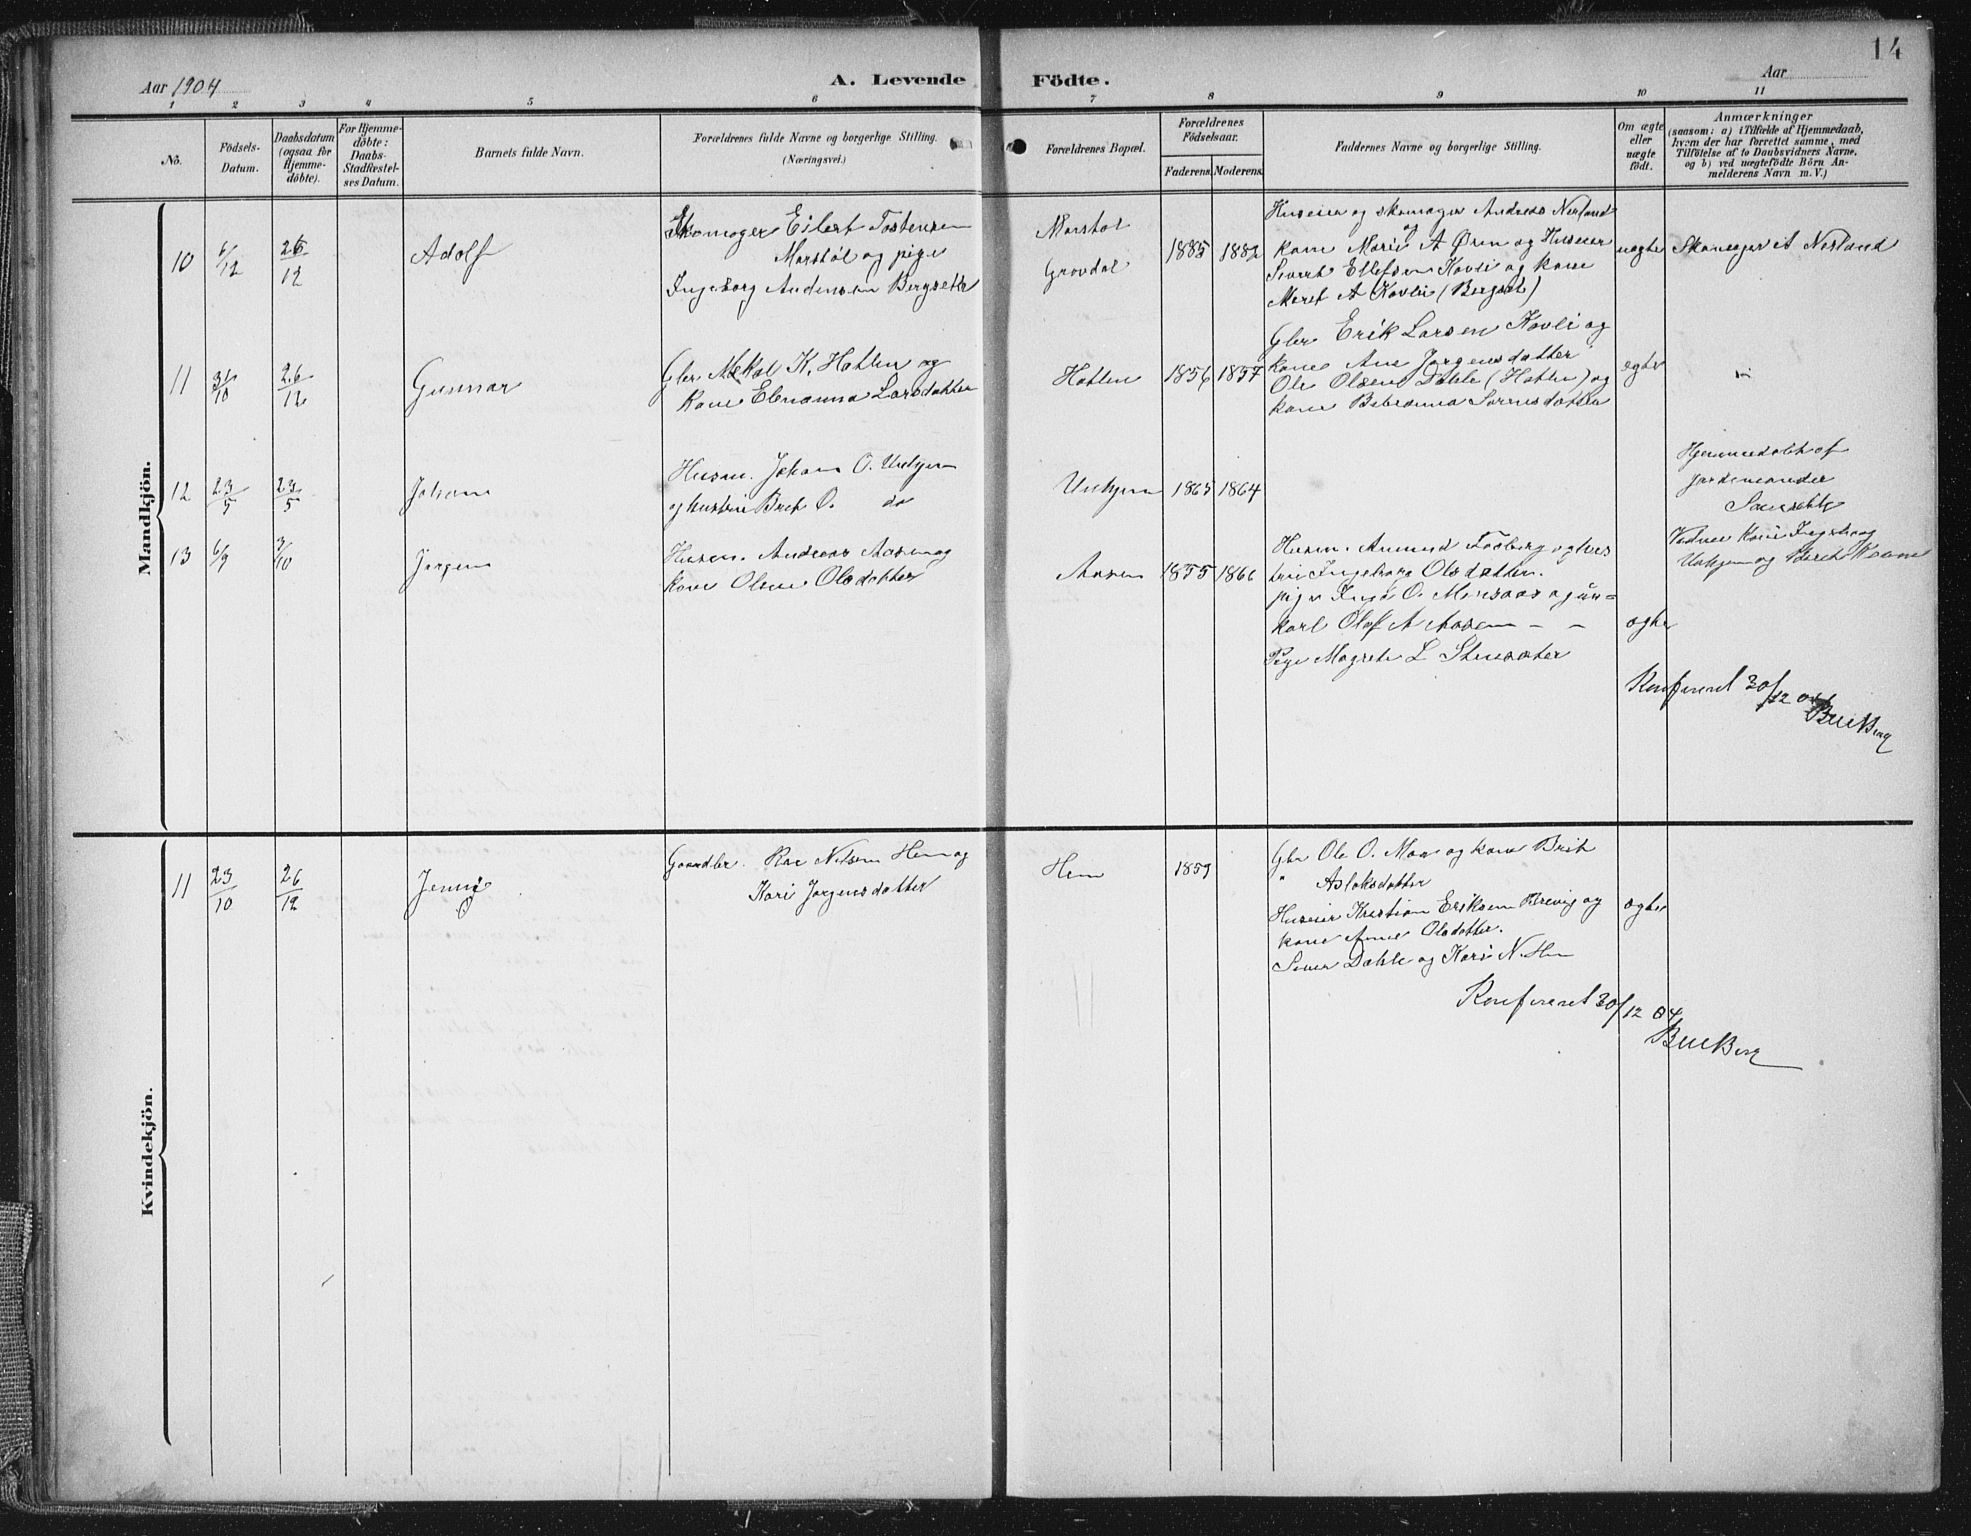 14
Aar 1904
A. Levende Födte.
Aar
1 2 3 4 5 6 7 8 9 10 11
No.
Födsels-
Datum.
Daabsdatum
(ogsaa for
Hjemme-
döbte).
For Hjemme-
döbte:
Daabs-
Stadfæstel-
ses Datum.
Barnets fulde Navn.
Forældrenes fulde Navne og borgerlige Stilling.
(Næringsvei.)
Forældrenes Bopæl.
Forældrenes
Födselsaar.
Faderens. Moderens.
Faddernes Navne og borgerlige Stilling.
Om ægte
eller
uægte
födt.
Anmærkninger
(saasom: a) i Tilfælde af Hjemmedaab,
hvem der har forrettet samme, med
Tilföielse af to Daabsvidners Navne,
og b) ved uægtefödte Börn An-
melderens Navn m. V.)
Mandkjön.
10 6/12 26/12 Adolf
Skomager Eilert Tostensen
Marstøl og pige
Ingeborg Andersen Bergsett
Marstøl
Grovdal
1885 1882
Huseier og skomager Andreas Nerland
og
kone Marie A Øren og Huseier
Sivert Ellefsen Kovli og kone
Meret A Kovli (Bergset)
uægte Skomager A Nerland
11 31/10 26/12 Gunnar
Gbr K. Hatlen og
kone Elenanna Larsdatter
Hatlen 1856 1857
Gbr Erik Larsen Kovli og
kone Ane Jørgensdatter
Ole Olsen Dahle (Hatle) og
kone
ægte "
12 23/5 23/5 Johan
Husm. Johan O. Utigjen
og hustru Bret O. do
Utigjen 1865 1864
Hjemmedøbt af
jordemoder
Sæersette
13 6/9 3/10 Jørgen
Husm. Andreas Aasen og
kone Oline Olsdatter
Aasen 1855 1866
Husm. Amund Fosberg og hus
tru Ingeborg Olsdatter.
pige Inga O. Morsaas og un-
karl Olaf A Aasen – –
Pige Magrete L Stensæter
ægte
Vidner Kone Ingeborg
Utigjen og
Konfereret 30/12 04
BueBerg
Kvindekjön.
11 23/10 26/12 Jenny
Gaardbr. Nilsen Hem og
Kari Jørgensdatter
Hem 1859
Gbr Ole O. Moe og kone Brit
" Aslaksdatter
Huseier Kristian Eriksen Brevig og
kone Anne Olsdatter.
Sever Dahle og Kari N. Hem
ægte
Konfereret 30/12 04
BueBerg